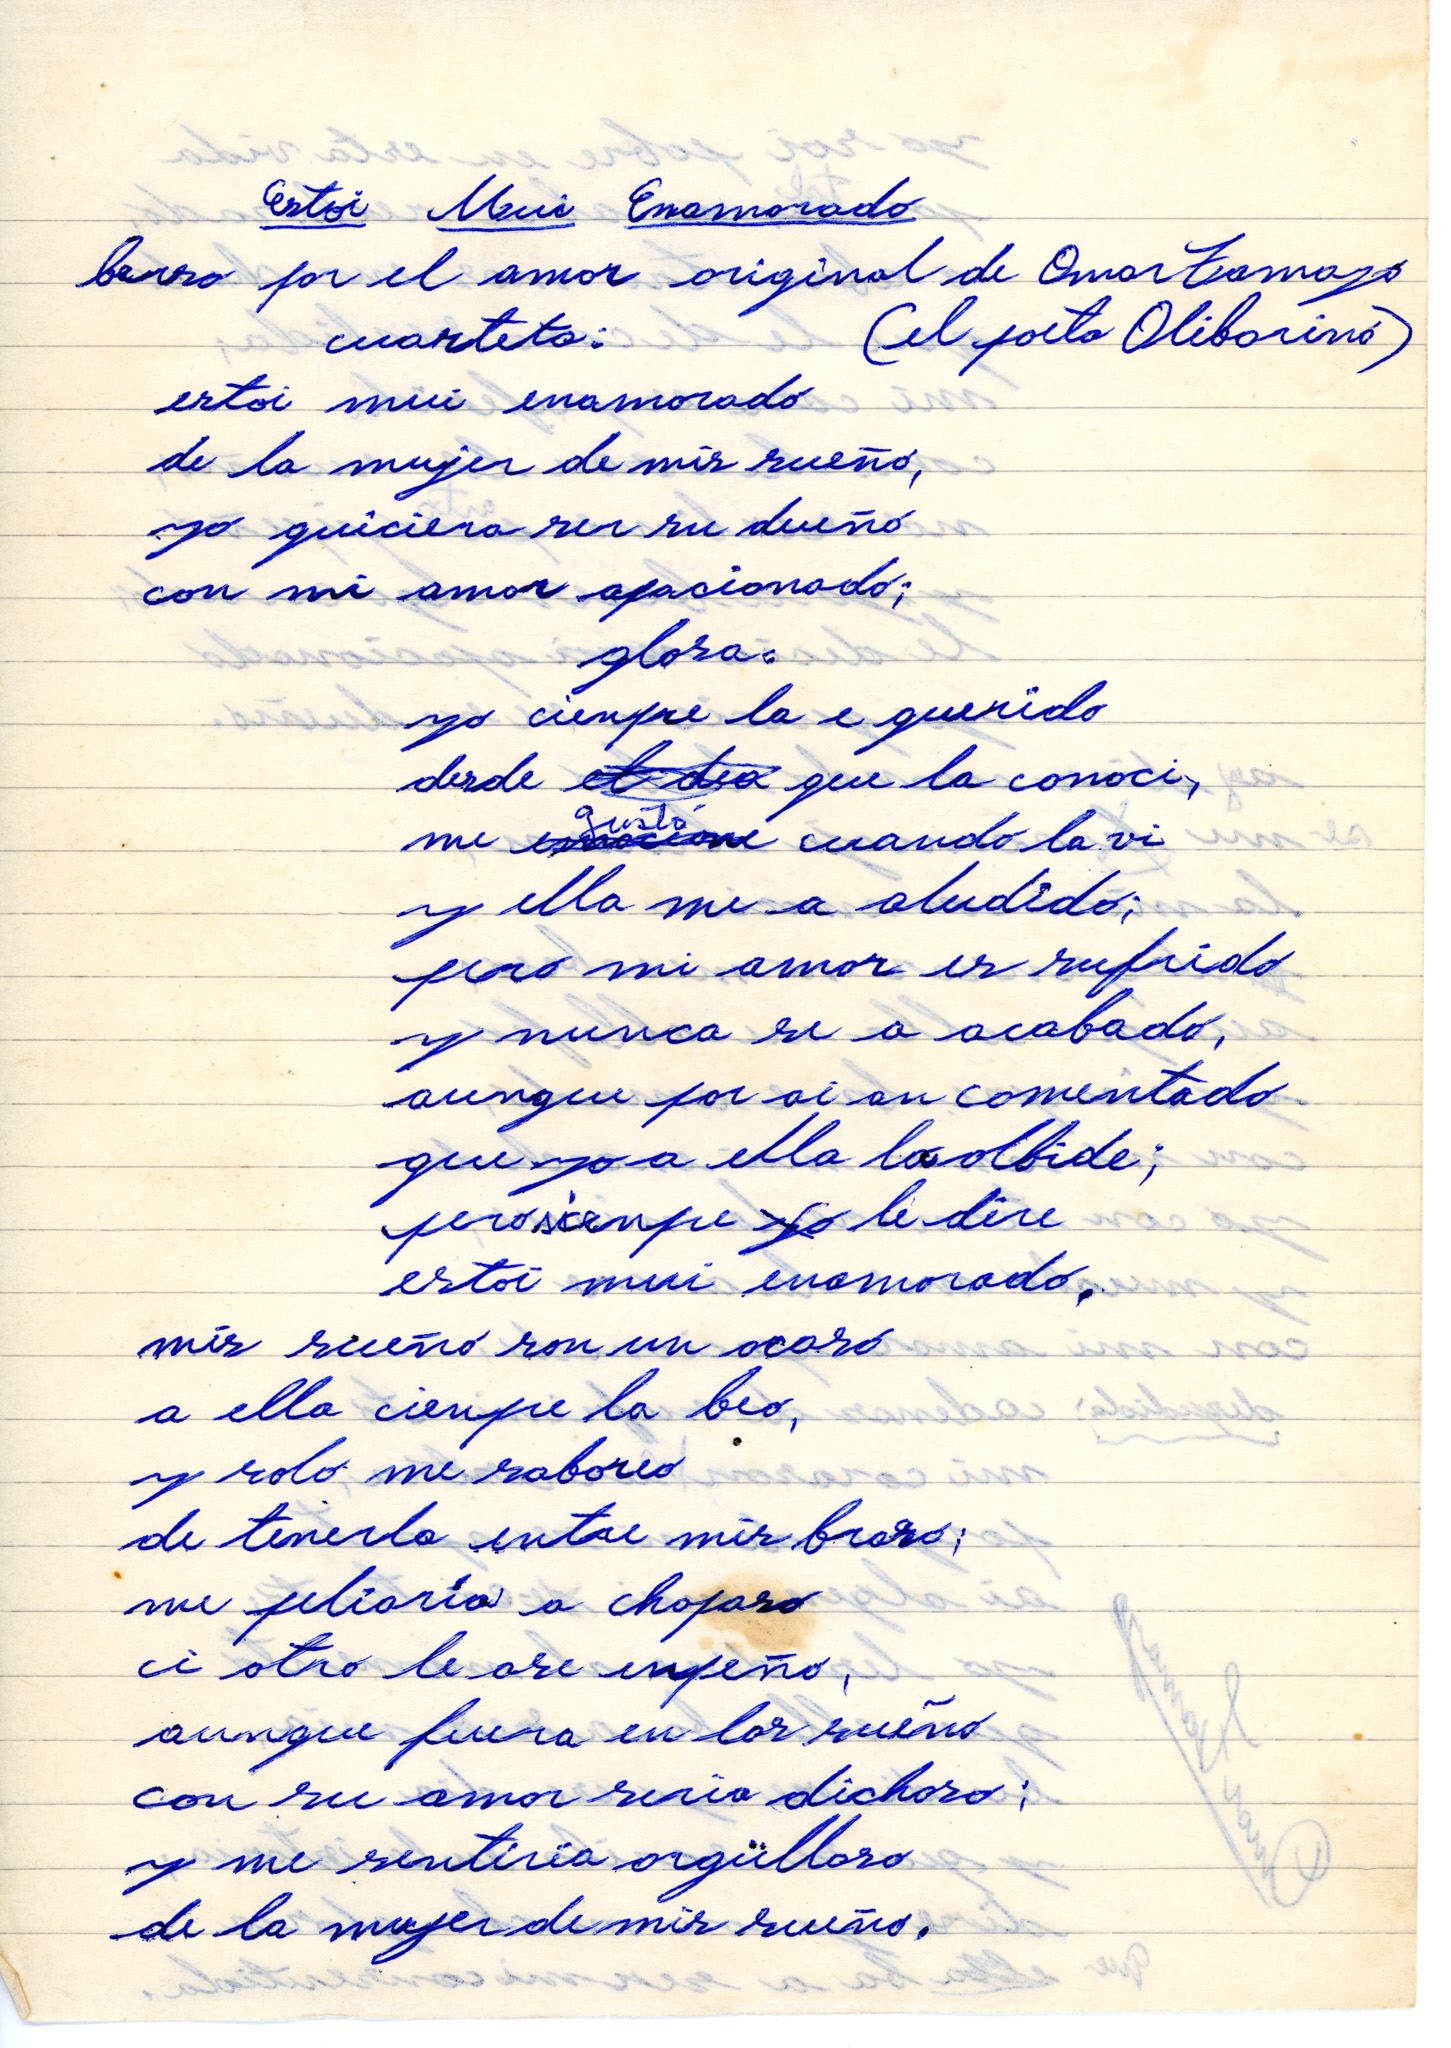 Estoi Mui Enamorado
berso por el amor original de Omar Tramayo
cuarteta: (el poeta Olibarino)
estoi mui enamorado
de la mujer de mis sueño,
yo quiciera ser su dueño
con mi amor apacionado;
glosa:
yo cienpre la e querido
desde el dia que la conoci,
gusto
me emocione cuando la vi
y ella me a aludido;
pero mi amor es sufrido
y nunca se a acabado,
aunque por ai an comentado
que yo a ella la olbide;
pero sienpre yo le dire
estoi mui enamorado.
mis sueño son un ocaso
a ella cienpre la beo,
y solo me saboreo
de tenerla entre mis braso;
me peliaria a chopaso
ci otro le ase enpeño,
aunque fuera en los sueño
con su amor seria dichoso;
y me sentiria orgülloso
de la mujer de mis sueño.